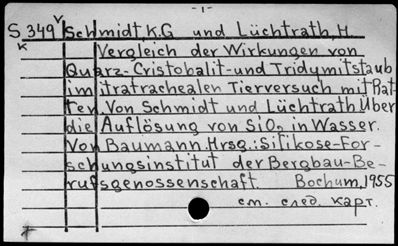 -1-
S 349 Schmidt, K.G. und Lüchtrath, H.
Vergleich der Wirkungen von
Quarz- Cristobalit- und Tridymitstaub
im itratrachealen Tierversuch mit Rat-
ten. Von Schmidt und Lüchtrath Über
die Auflösung von SiO₂ in Wasser.
Von Baumann. Hrsg.: Silikose-For-
schungsinstitut der Bergbau-Be-
rufsgenossenschaft. Bochum, 1955
см. след. карт.